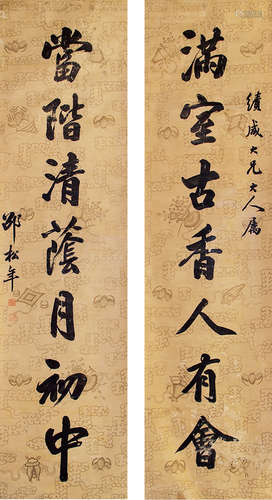 績咸大兄大人属
滿室古香人有會
當階清蔭月初中
邵松年